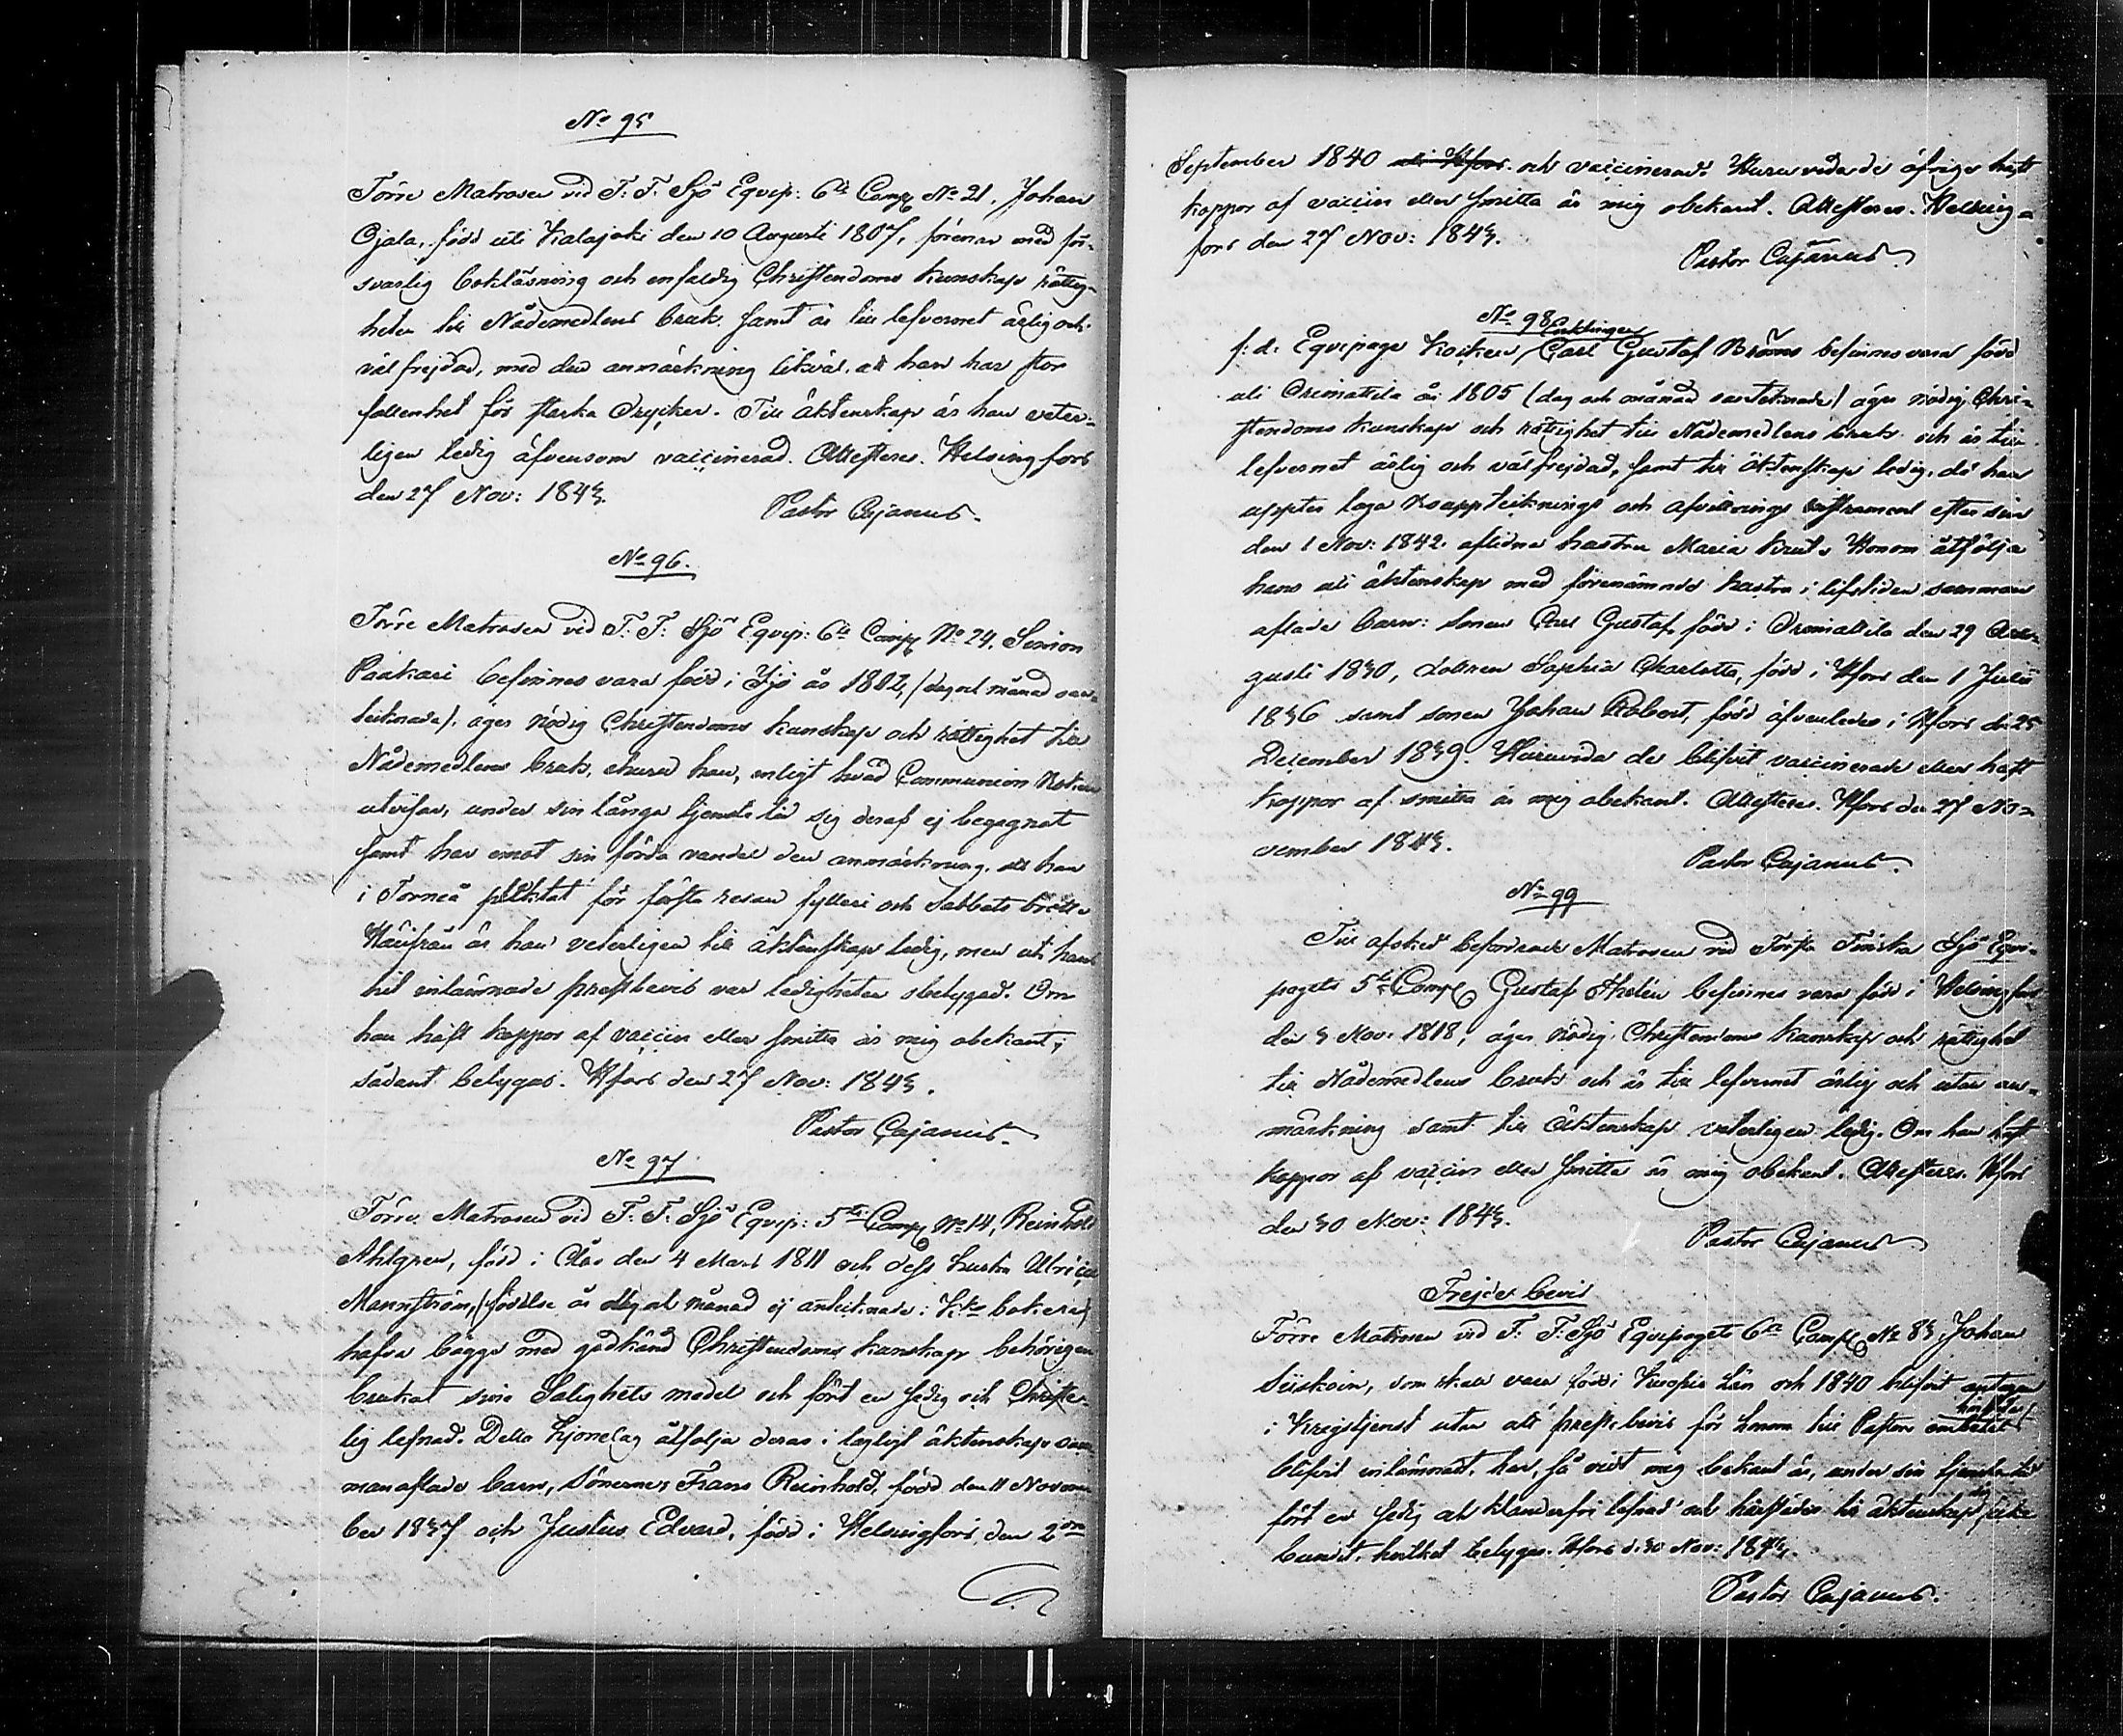 No 95
Förre Matrosen vid F: F: Sjö Equip: 6te Comp No 21, Johan
Ojala, född uti Kalajoki den 10 Augusti 1807, förenar med för-
svarlig bokläsning och enfaldig Christendoms kunskap rättig-
heten till Nådemedlens bruk. samt är till lefvernet ärlig och
välfrejdad, med den anmärkning likväl, att han har stor
fallenhet för starka drycker. Till äktenskap är han veter-
ligen ledig äfvensom vaccinerad. Attesteres. Helsingfors
den 27 Nov: 1843.
Pastor Cajanus.
No 96.
Förre Matrosen vid F: F: Sjö Equip: 6te Comp No 24, Simon
Paakari befinnes vara född i Ijo år 1802, (dag och månad oan-
tecknade). äger nödig Christendoms kunskap och rättighet till
Nådemedlens bruk, ehuru han, enligt hvad Communion Boken
utvisar, under sin långa tjenste tid sig deraf ej begagnat
samt har emot sin förda vandel den anmärkning, att han
i Torneå pliktat för första resan fylleri och Sabbats brott.
Härifrån är han veterligen till äktenskap ledig, men uti hans
hit inlämnade prestbevis var ledigheten obetygad. Om
han haft koppor af vaccin eller smitta är mig obekant;
sådant betygas. Hfors den 27 Nov: 1843.
Pastor Cajanus.
No 97
Förre Matrosen vid F: F: Sjö Equip: 5te Comp No 14, Reinhold
Ahlgren, född i Åbo den 4 Mars 1811 och dess hustru Ulrica
Mannström, (födelse år dag och månad ej antecknade i K:ko bokerna)
hafva bägge med godkänd Christendoms kunskap behörigen
brukat sine Salighets medel och fört en sedig och Christe-
lig lefnad. Detta Hjonelag åtfölja deras i lagligt äktenskap sam-
manaflade barn, Sönerne; Frans Reinhold, född den 11 Novem-
ber 1837 och Justus Edvard, född i Helsingfors den 2dra
September 1840 uti Hfors. och vaccinerad. Huruvida de öfriga haft
koppor af vaccin eller smitta är mig obekant. Attesteres. Helsing-
fors den 27 Nov: 1843.
Pastor Cajanus
No 98
Enklingen
f: d: Equipage Kocken, Carl Gustaf Broms befinnes vara född
uti Orimattila år 1805 (dag och månad oantecknade) äger nödig Chri-
stendoms kunskap och rättighet till Nådemedlens bruk och är till
lefvernet ärlig och välfrejdad, samt till äktenskap ledig, då han
uppter laga Bouppteiknings och afvittrings instrument efter sin
den 1 Nov: 1842 aflidna hustru Maria Honom åtfölja
hans uti äktenskap med förenämnda hustru i lifstiden samman
aflade barn: sonen Carl Gustaf, född i Orimattila den 29 Au-
gusti 1830, dottren Sophia Charlotta, född i Hfors den 1 Julii
1836 samt sonen Johan Robert, född äfvenledes i Hfors den 25
December 1839. Huruvida de blifvit vaccinerade eller haft
koppor af smitta är mig obekant. Attesteres. Hfors den 27 No-
vember 1843.
Pastor Cajanus.
No 99
Till afsked befordrade Matrosen vid Första Finska Sjö Equi-
pagets 5te Comp Gustaf Thelén befinnes vara född i Helsingfors
den 3 Nov. 1818, äger nödig Christendoms kunskap och rättighet
till Nådemedlens bruk och är till lefvernet ärlig och utan an-
märkning samt till Äktenskap veterligen ledig. Om han haft
koppor af vaccin eller smitta är mig obekant. Attesteres. Hfors
den 30 Nov: 1843.
Pastor Cajanus
Frejde bevis
Förre Matrosen vid F: F: Sjö Equipagets 6te Comp No 83 Johan
Siiskoin, som skall vara född i Kuopio Län och 1840 blifvit antagen
i Krigstjenst utan att prestbevis för honom till Pastors embetet härstädes
blifvit inlämnadt, har, så vidt mig bekant är, under sin tjenste tid
fört en sedig och klanderfri lefnad och härstädes till äktenskap sig icke
bundit, hvilket betygas. Hfors d. 30 Nov: 1843.
Pastor Cajanus.